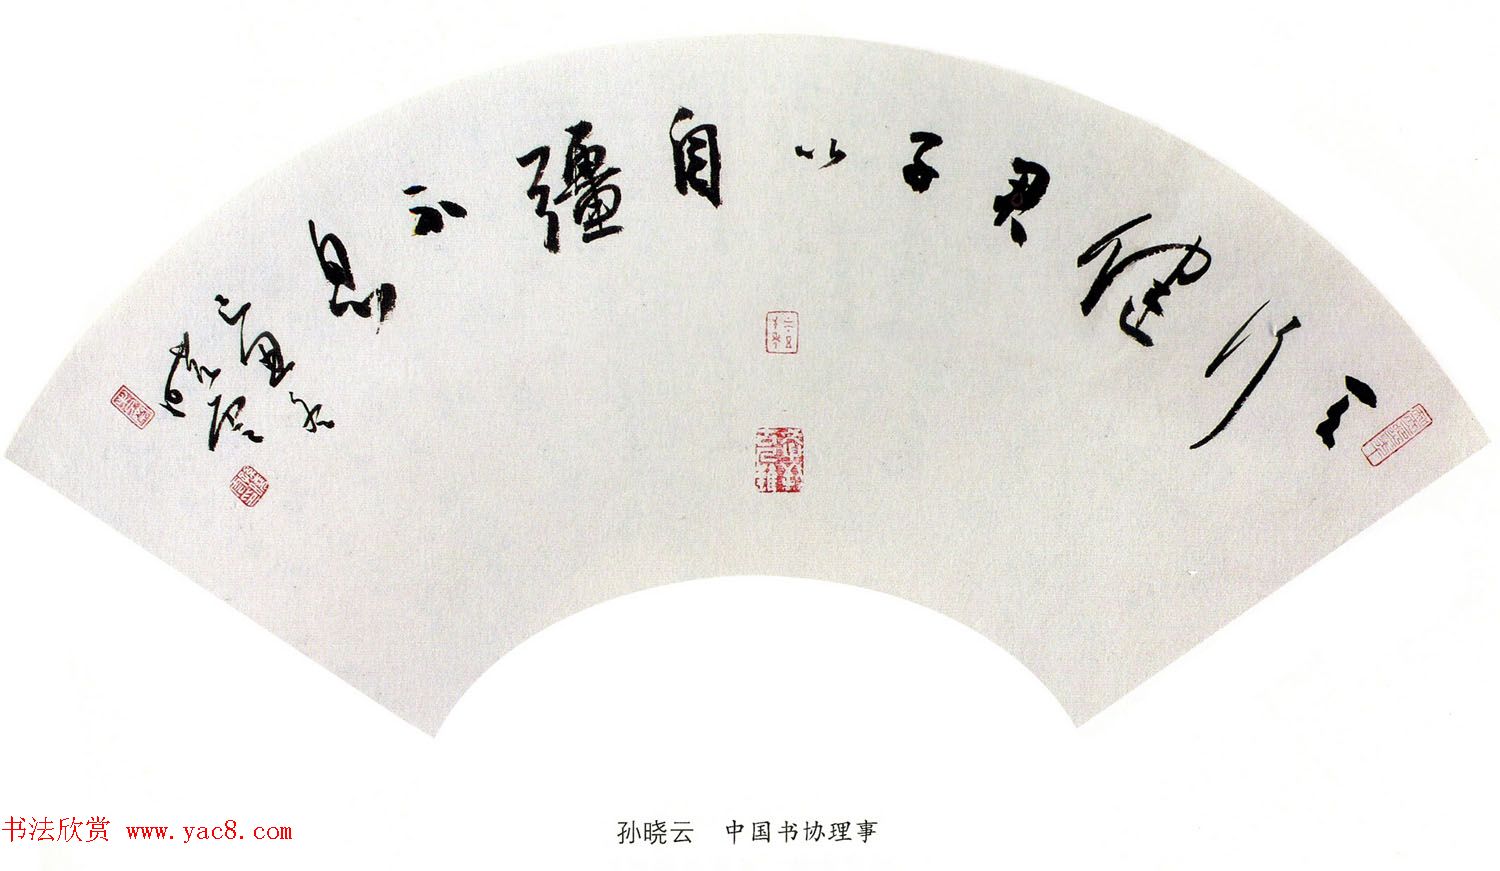 天行健君子以自彊不息
乙酉
曉雲
孙晓云 中国书协理事
书法欣赏 www.yac8.com